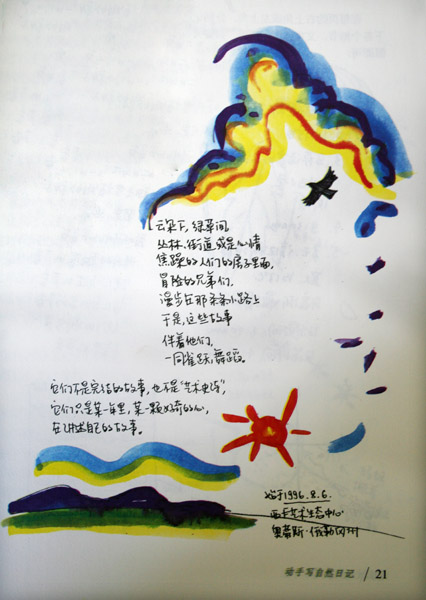 云朵下,绿草间
丛林、街道、或是心情
焦躁的人们的房子里面,
冒险的兄弟们,
漫步在那条条小路上
于是,这些故事
伴着他们,
一同雀跃,舞蹈。
它们不是完结的故事,也不是“艺术史诗”,
它们只是某一年里,某一颗好奇的心,
在讲述自己的故事。
始于1996.8.6.
西卡艺术生态中心
奥蒂斯·俄勒冈州
动手写自然日记 / 21